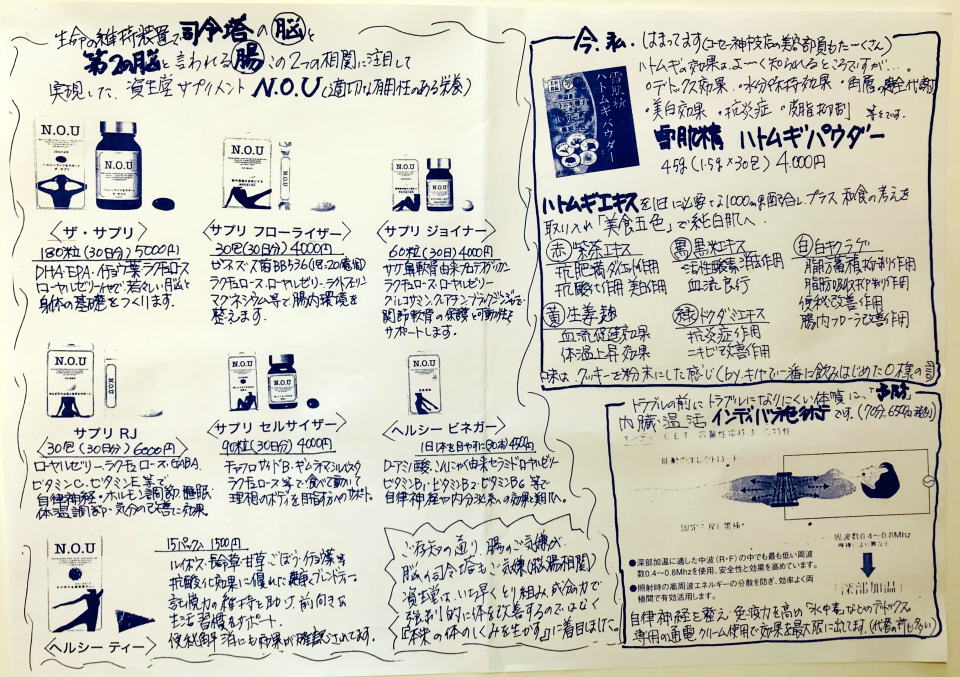 生命の維持装置で司令塔の脳と
第2の脳と言われる腸この2つの相関に注目して
実現した、資生堂サプリメント N.O.U(適切な用性のある栄養)
N.O.U
N.O.U
〈ザ・サプリ〉
180粒(30日分)5000円)
DHA・EPA・イチョウ葉・ラクチュロース
ローヤルゼリーetcで、若々しい脳と
身体の基礎をつくります。
N.O.U
N.O.U
〈サプリ フローライザー〉
30包(30日分)4000円)
ビフィズス菌BB536
ラクチュロース・ローヤルゼリー・ラクトフェリン
マグネシウム等で腸内環境を
整えます。
N.O.U
N.O.U
〈サプリ ジョイナー〉
60粒(30日)4000円)
サケ鼻軟骨由来プロテオグリカン
ラクチュロース・ローヤルゼリー
グルコサミン、
関節軟骨の保護と可動性を
サポートします。
N.O.U
サプリ RJ
30包(30日分)6000円)
ローヤルゼリー・ラクチュロース・GABA
ビタミンC・ビタミンE等で
自律神経・ホルモン調節、睡眠
体温調節・気分の改善に効果。
N.O.U
N.O.U
サプリ セルサイザー
90粒(30日分)4000円)
ギムネマシルベスタ
ラクチュロース等で食べて動いて
理想のボディを脂肪分へのサポート。
N.O.U
ヘルシー ビネガー
1日1本を目やすに(30本)4500円
D-アミノ酸、こんにゃく由来セラミド・ローヤルゼリー
ビタミンB1・ビタミンB2・ビタミンB6 等で
自律神経や内分泌系への効果を期待。
N.O.U
〈ヘルシー ティー〉
15パック入 1500円
ルイボス・長命草・甘草・ごぼう・イチョウ葉等
抗酸化効果に優れたブレンドティー
記憶力の維持を助け、前向きな
生活習慣をサポート。
便秘解消にも効果が確認されてます。
ご存知の通り、腸のご気嫌が
脳の司令塔もご気嫌(脳腸相関)
資生堂は、いち早くとり組み、成分力で
強制的に体を改善するのではなく
『本来の体のしくみを生かす』に着目しました。
今、私、はまってます(コーセー神戸支店の美容部員もたーくさん)
ハトムギの効果は、よ〜く知られるところですが…
○デトックス効果 ・水分保持効果 ・角層の健全代謝
・美白効果 ・抗炎症 ・皮脂抑制 等です。
雪肌粋
ハトムギパウダー
雪肌精 ハトムギパウダー
45g(1.5g×30包)4.000円
ハトムギエキスを1日に必要な1000mg配合し、プラス 和食の考えを
取り入れ「美食五色」で純白肌へ。
赤 紫茶エキス
抗肥満ダイエット作用
抗酸化作用 美白作用
黒 黒米エキス
活性酸素消去作用
血流促行
白 白キクラゲ
脂肪蓄積抑制作用
脂肪吸収抑制作用
便秘改善作用
腸内フローラ改善作用
黄 生姜麹
血流促進効果
体温上昇効果
緑 ドクダミエキス
抗炎症作用
ニキビ改善作用
味は、クッキーを粉末にした感じ(by 一番に飲みはじめたO様の言)
トラブルの前にトラブルになりにくい体質に、「予防」
内臓温活 インディバ施術です。(70分6500円税別)
周波数0.4〜0.8Mhz
深部加温
●深部加温に適した中波(R・F)の中でも最も低い周波
数0.4〜0.8Mhzを使用、安全性と効果を高めています。
●照射時の高周波エネルギーの分散を防ぎ、効率よく両
極間で有効活用します。
自律神経を整え・免疫力を高め「水や毒」などのデトックス
専用の通電クリーム使用で効果を最大限に出してます。